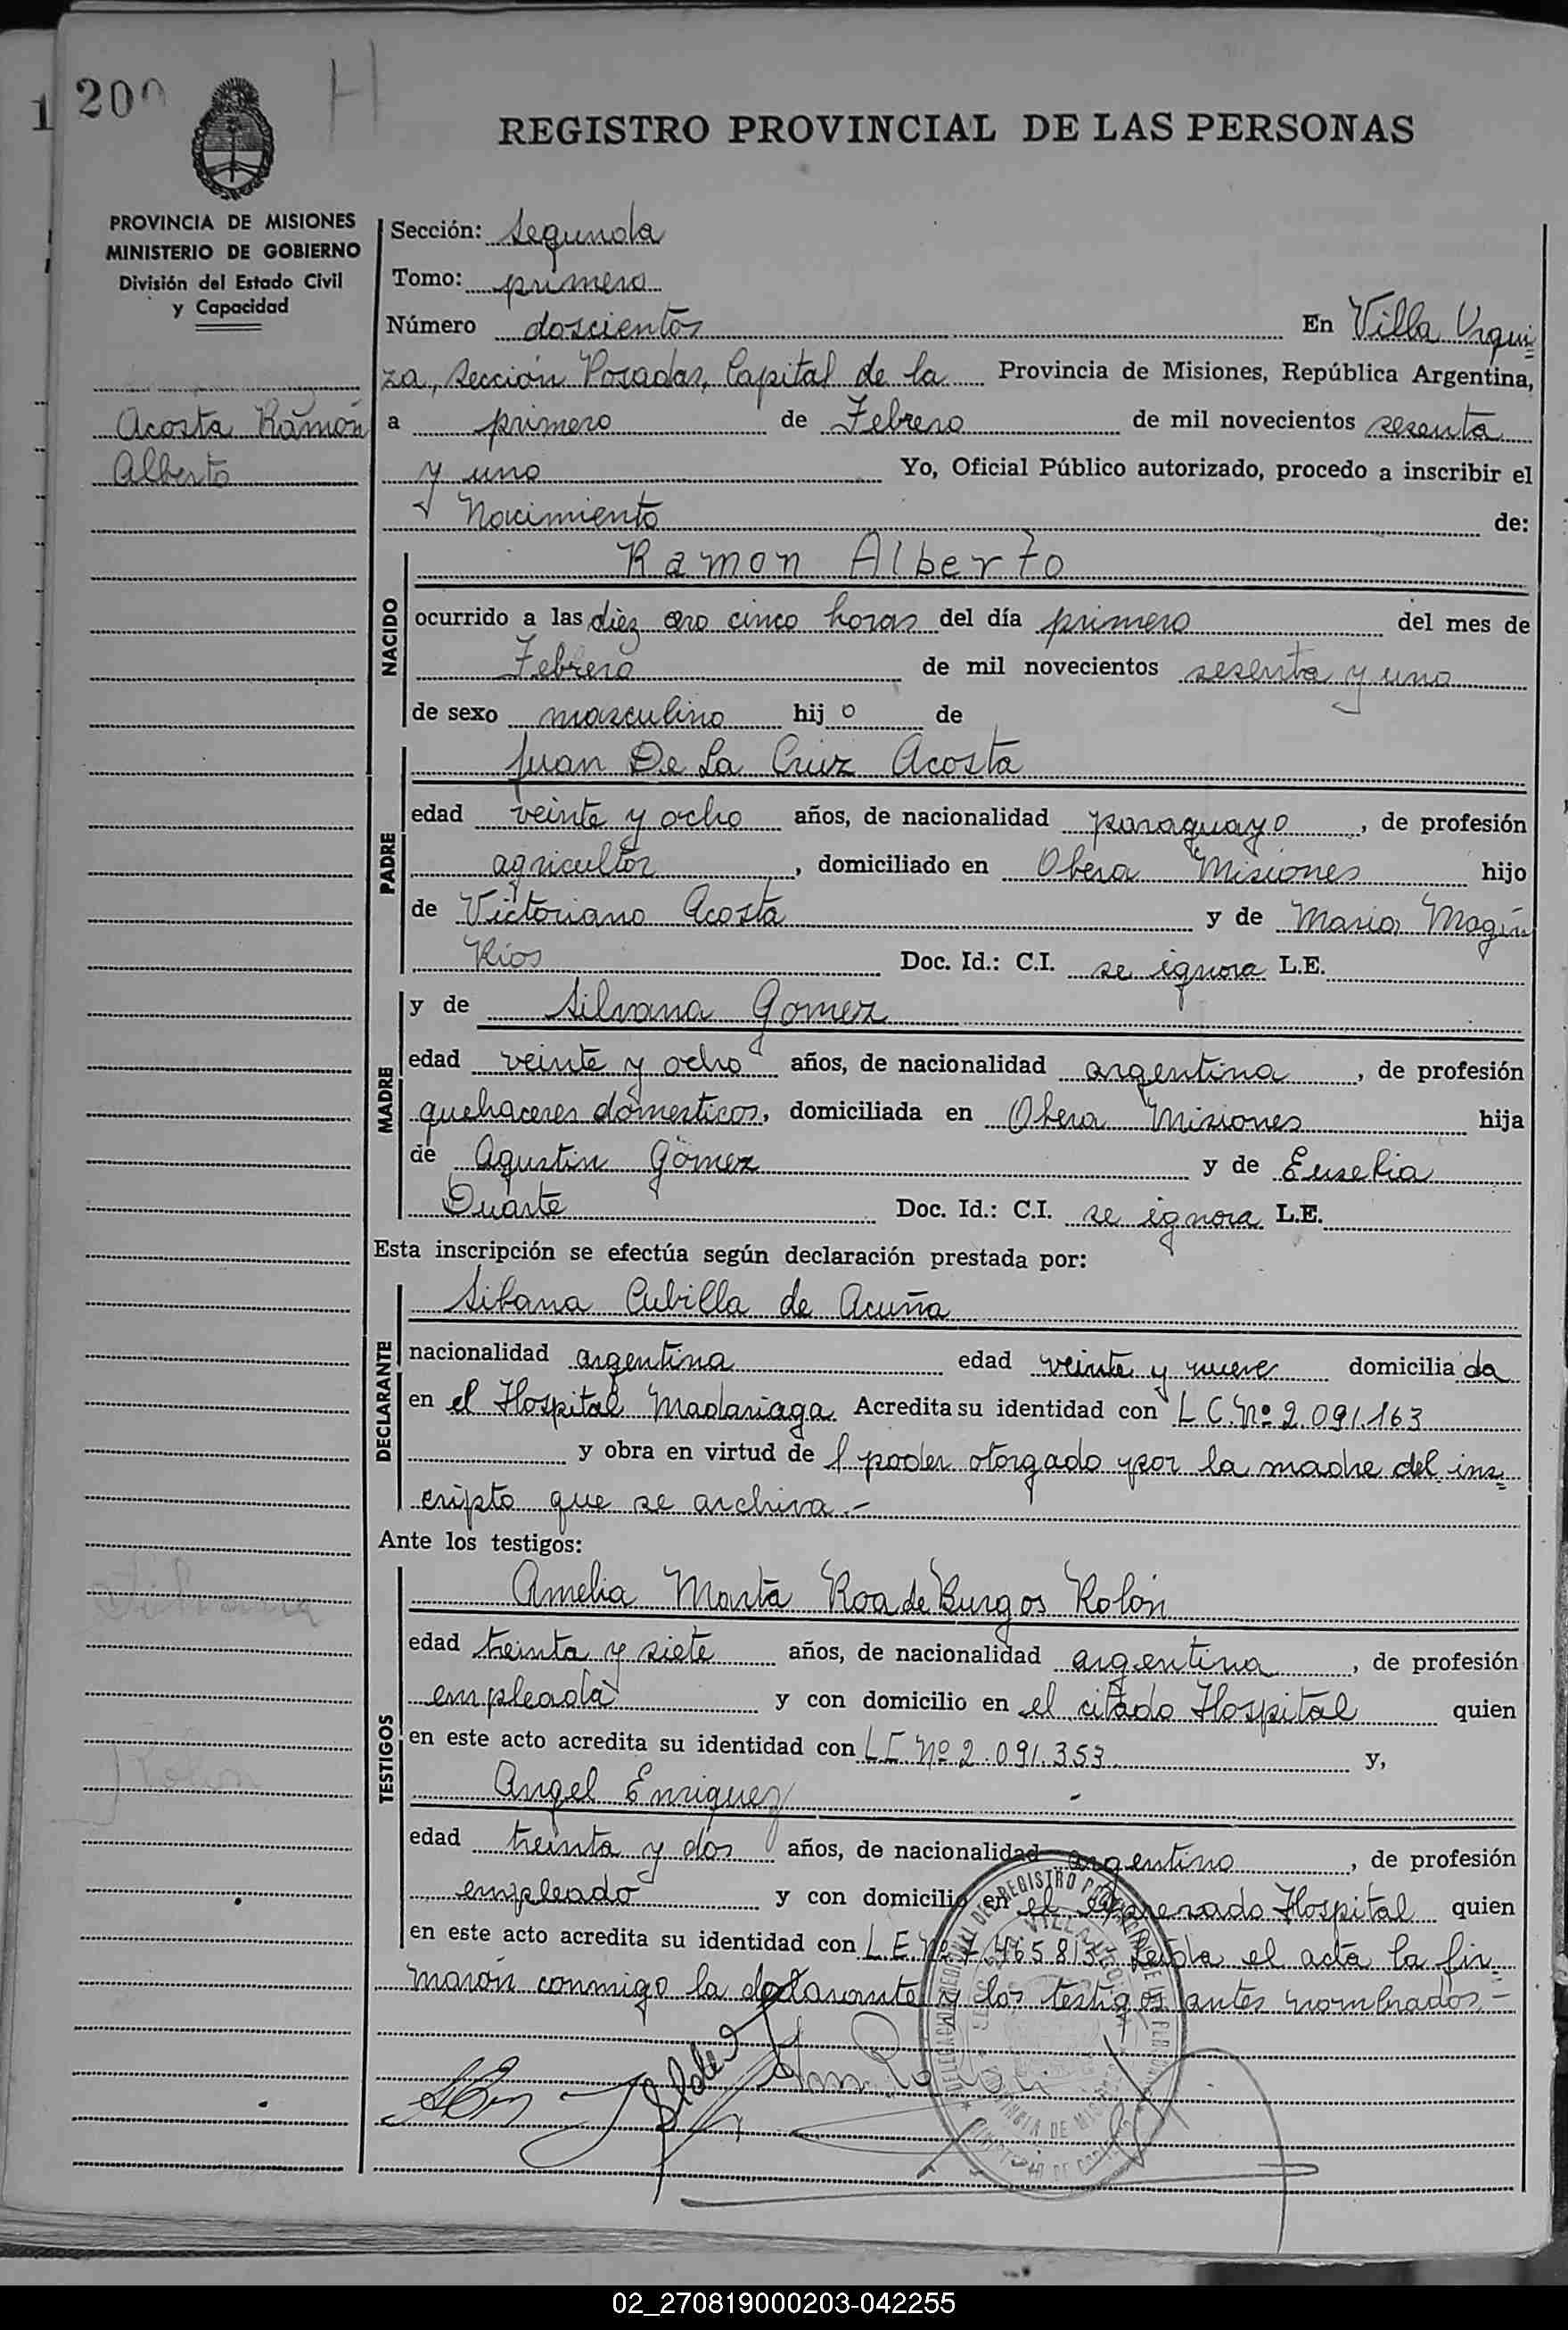 200 H
REGISTRO PROVINCIAL DE LAS PERSONAS
PROVINCIA DE MISIONES
MINISTERIO DE GOBIERNO
División del Estado Civil
y Capacidad
Acosta Ramón
Alberto
Sección: Segunda
Tomo: primero
Número doscientos En Villa Urqui=
za, Sección Posadas, Capital de la Provincia de Misiones, República Argentina,
a primero de Febrero de mil novecientos sesenta
y uno Yo, Oficial Público autorizado, procedo a inscribir el
Nacimiento de:
NACIDO
Ramon Alberto
ocurrido a las diez cero cinco horas del día primero del mes de
Febrero de mil novecientos sesenta y uno
de sexo masculino hij o de
PADRE
Juan De La Cruz Acosta
edad veinte y ocho años, de nacionalidad paraguayo, de profesión
agricultor, domiciliado en Obera Misiones hijo
de Victoriano Acosta y de Maria Magin
Rios Doc. Id.: C.I. se ignora L.E.
MADRE
y de Silvana Gomez
edad veinte y ocho años, de nacionalidad argentina, de profesión
quehaceres domesticos, domiciliada en Obera Misiones hija
de Agustin Gomez y de Eusebia
Duarte Doc. Id.: C.I. se ignora L.E.
Esta inscripción se efectúa según declaración prestada por:
DECLARANTE
Silvana Cubilla de Acuña
nacionalidad argentina edad veinte y nueve domicilia da
en el Hospital Madariaga Acredita su identidad con L C. Nº 2.091.163
y obra en virtud de poder otorgado por la madre del ins=
cripto que se archiva.-
Ante los testigos:
TESTIGOS
Amelia Marta Roa de Burgos Rolón
edad treinta y siete años, de nacionalidad argentina, de profesión
empleada y con domicilio en el citado Hospital quien
en este acto acredita su identidad con L C Nº 2.091.353 y,
Angel Enriquez
edad treinta y dos años, de nacionalidad argentino, de profesión
empleado y con domicilio en el expresado Hospital quien
en este acto acredita su identidad con L.E. Nº 7.465.813 Leida el acta la fir=
maron conmigo la declarante y los testigos antes nombrados.-
02_270819000203-042255